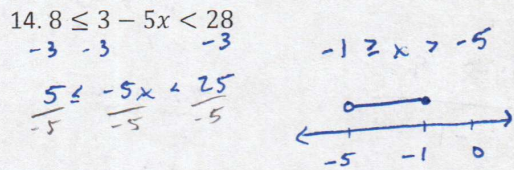 14. 8 ≤ 3 − 5x < 28
-3 -3 -3
5 ≤ -5x < 25
-5 -5 -5
-1 ≥ x > -5
-5 -1 0